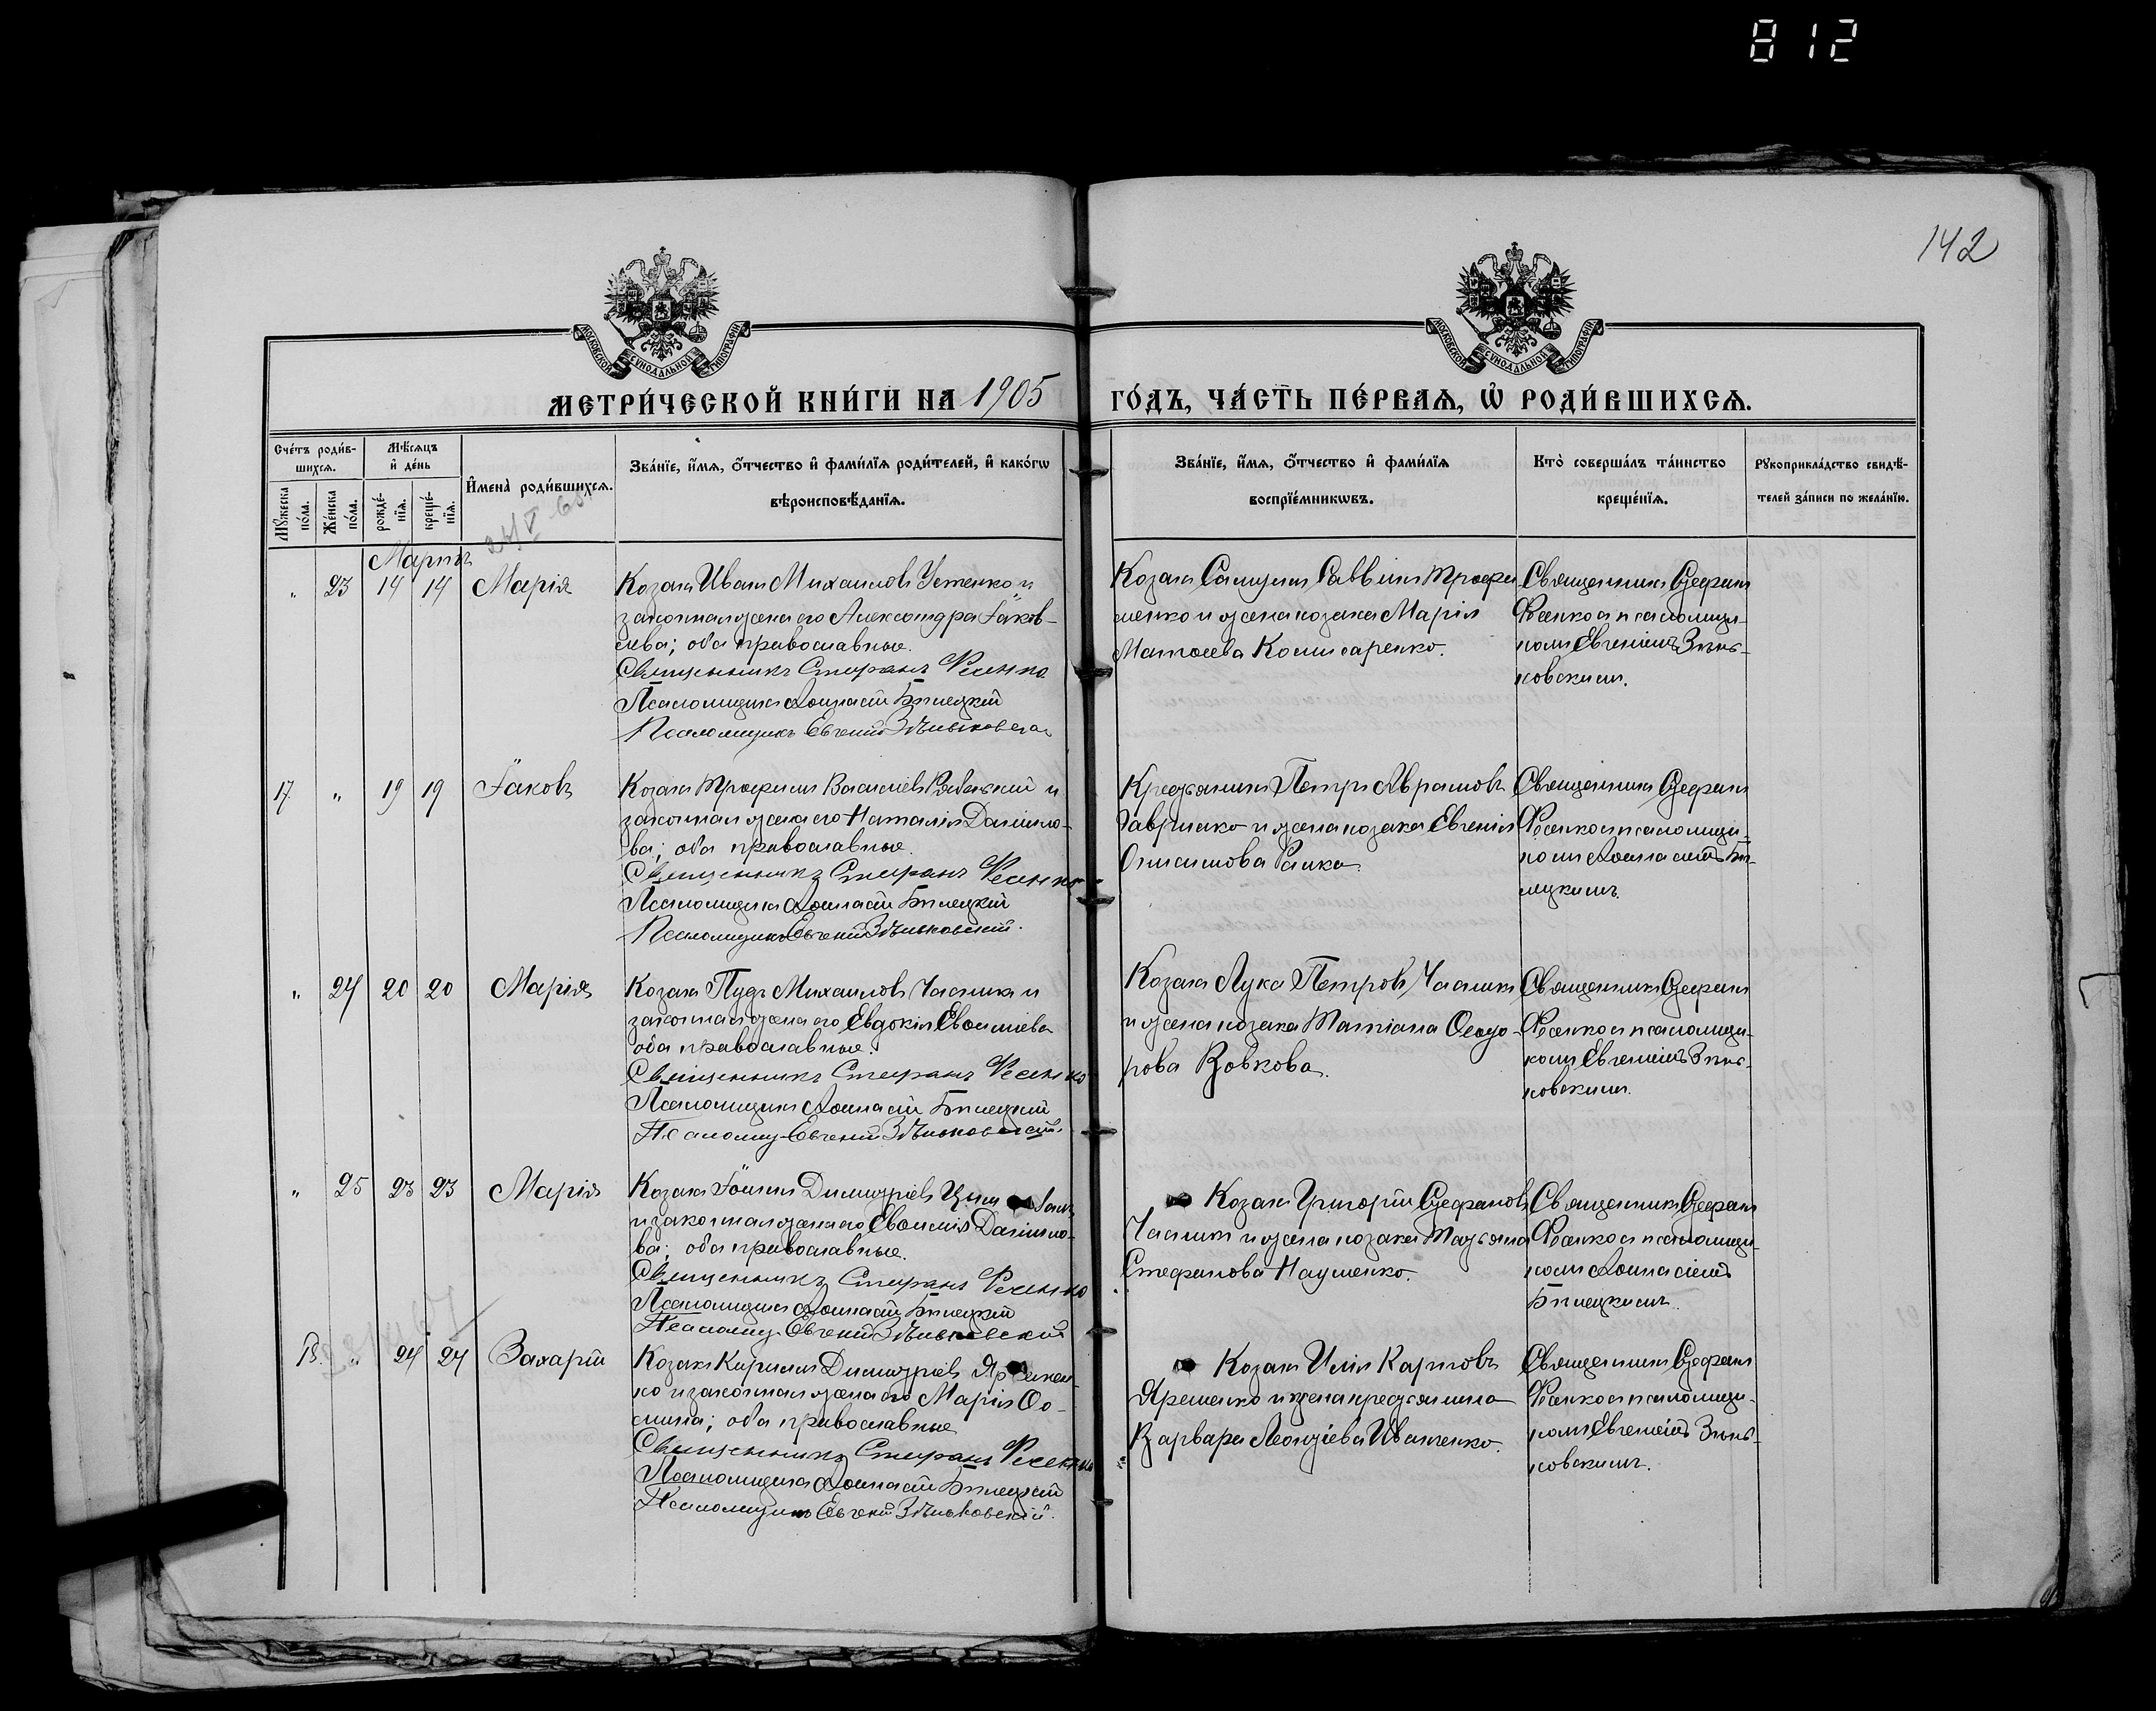 812
142
МОСКОВСКОЙ СѴНОДАЛЬНОЙ ТИПОГРАФІИ
МОСКОВСКОЙ СѴНОДАЛЬНОЙ ТИПОГРАФІИ
МЕТРИ́ЧЕСКОЙ КНИ́ГИ НА 1905 ГО́ДЪ, ЧА́СТЬ ПЕ́РВАѦ, Ѡ҆ РОДИ́ВШИХСѦ.
Сче́тъ роди́в-
шихсѧ.
Мѣ́сѧцъ
и҆ де́нь
И҆мена̀ роди́вшихсѧ.
Зва́нїе, и҆́мѧ, ѻ҆́тчество и҆ фами́лїѧ роди́телей, и҆ како́гѡ
вѣроисповѣ́данїѧ.
Мꙋ́жеска
по́ла.
Же́нска
по́ла.
рожде́-
нїѧ.
креще́-
нїѧ.
Зва́нїе, и҆́мѧ, ѻ҆́тчество и҆ фами́лїѧ
воспрїе́мникѡвъ.
Кто̀ соверша́лъ та́инство
креще́нїѧ.
Рꙋкоприкла́дство свидѣ́-
телей за́писи по жела́нїю.
Мартъ
" 23 14 14 Марія
Козакъ Иванъ Михаиловъ Устенко и
законная жена его Александра Іаков-
лева; оба православные.
Священникъ Стефанъ Фесенко
Псаломщикъ Бѣлецкій
Псаломщикъ Евгеній Зѣньковскій
Козакъ Самуилъ Саввинъ Трофи
менко и жена козака Марія
Матѳеева Комисаренко.
Священникъ Стефанъ
Фесенко съ псаломщи-
комъ Евгеніемъ Зѣнь-
ковскимъ.
17 " 19 19 Іаковъ
Козакъ Трофимъ Василіевъ и
законная жена его Наталія Даніило-
ва; оба православные.
Священникъ Стефанъ Фесенко
Псаломщикъ Бѣлецкій
Псаломщикъ Евгеній Зѣньковскій.
Крестьянинъ Петръ Аврамовъ
Гавриленко и жена козака Евгенія
Онисимова
Священникъ Стефанъ
Фесенко съ псаломщи-
комъ Бѣ-
лецкимъ.
" 24 20 20 Марія
Козакъ Пудъ Михаиловъ Часникъ и
законная жена его Евдокія Евѳиміева
оба православные.
Священникъ Стефанъ Фесенко
Псаломщикъ Бѣлецкій
Псаломщ. Евгеній Зѣньковскій.
Козакъ Лука Петровъ Часникъ
и жена козака Татіана Ѳеодо-
рова Вовкова.
Священникъ Стефанъ
Фесенко съ псаломщи-
комъ Евгеніемъ Зѣнь-
ковскимъ.
" 25 23 23 Марія
Козакъ Іоаннъ Димитріевъ
и законная жена его Евѳимія Даніило-
ва; оба православные.
Священникъ Стефанъ Фесенко
Псаломщикъ Бѣлецкій
Псаломщ. Евгеній Зѣньковскій
Козакъ Григорій Стефановъ
Часникъ и жена козака Татьяна
Стефанова Науменко.
Священникъ Стефанъ
Фесенко съ псаломщи-
комъ
Бѣлецкимъ.
18. " 24 24 Захарій
Козакъ Кириллъ Димитріевъ Яремен
ко и законная жена его Марія Ѳо-
мина; оба православные
Священникъ Стефанъ Фесенко
Псаломщикъ Бѣлецкій
Псаломщикъ Евгеній Зѣньковскій.
Козакъ Илія Карповъ
Яременко и жена крестьянина
Варвара Леонтіева Иванченко.
Священникъ Стефанъ
Фесенко съ псаломщи-
комъ Евгеніемъ Зѣнь-
ковскимъ.